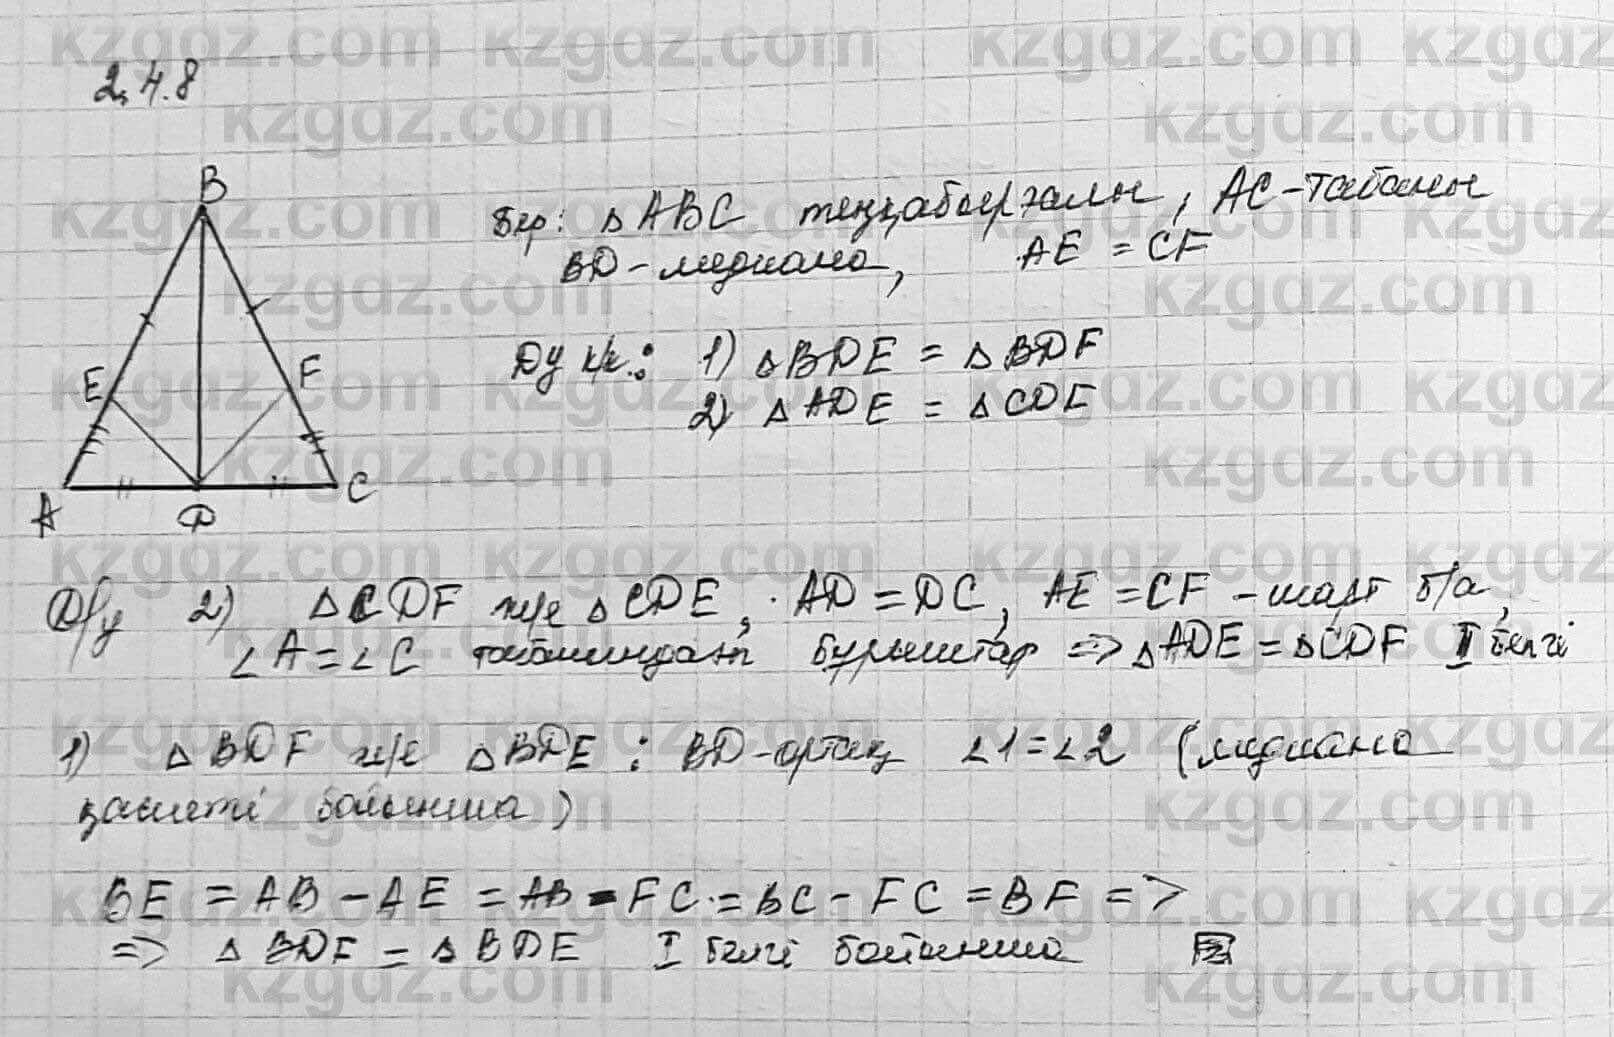 2.4.8
B
E
F
A
D
C
Бер: △ABC теңқабырғалы, AC-табаны
BD-медиана, AE = CF
Дәу к/к.: 1) △BDE = △BDF
2) △ADE = △CDF
Д/у 2) △CDF ж/е △CDE, AD = DC, AE = CF - шарт б/а,
∠A = ∠C табанындағы бұрыштар => △ADE = △CDF I белгі
1) △BDF ж/е △BDE : BD-ортақ ∠1 = ∠2 (медиана
қасиеті бойынша)
BE = AB - AE = AB - FC = BC - FC = BF =>
=> △BDF = △BDE I белгі бойынша
kzgdz.com